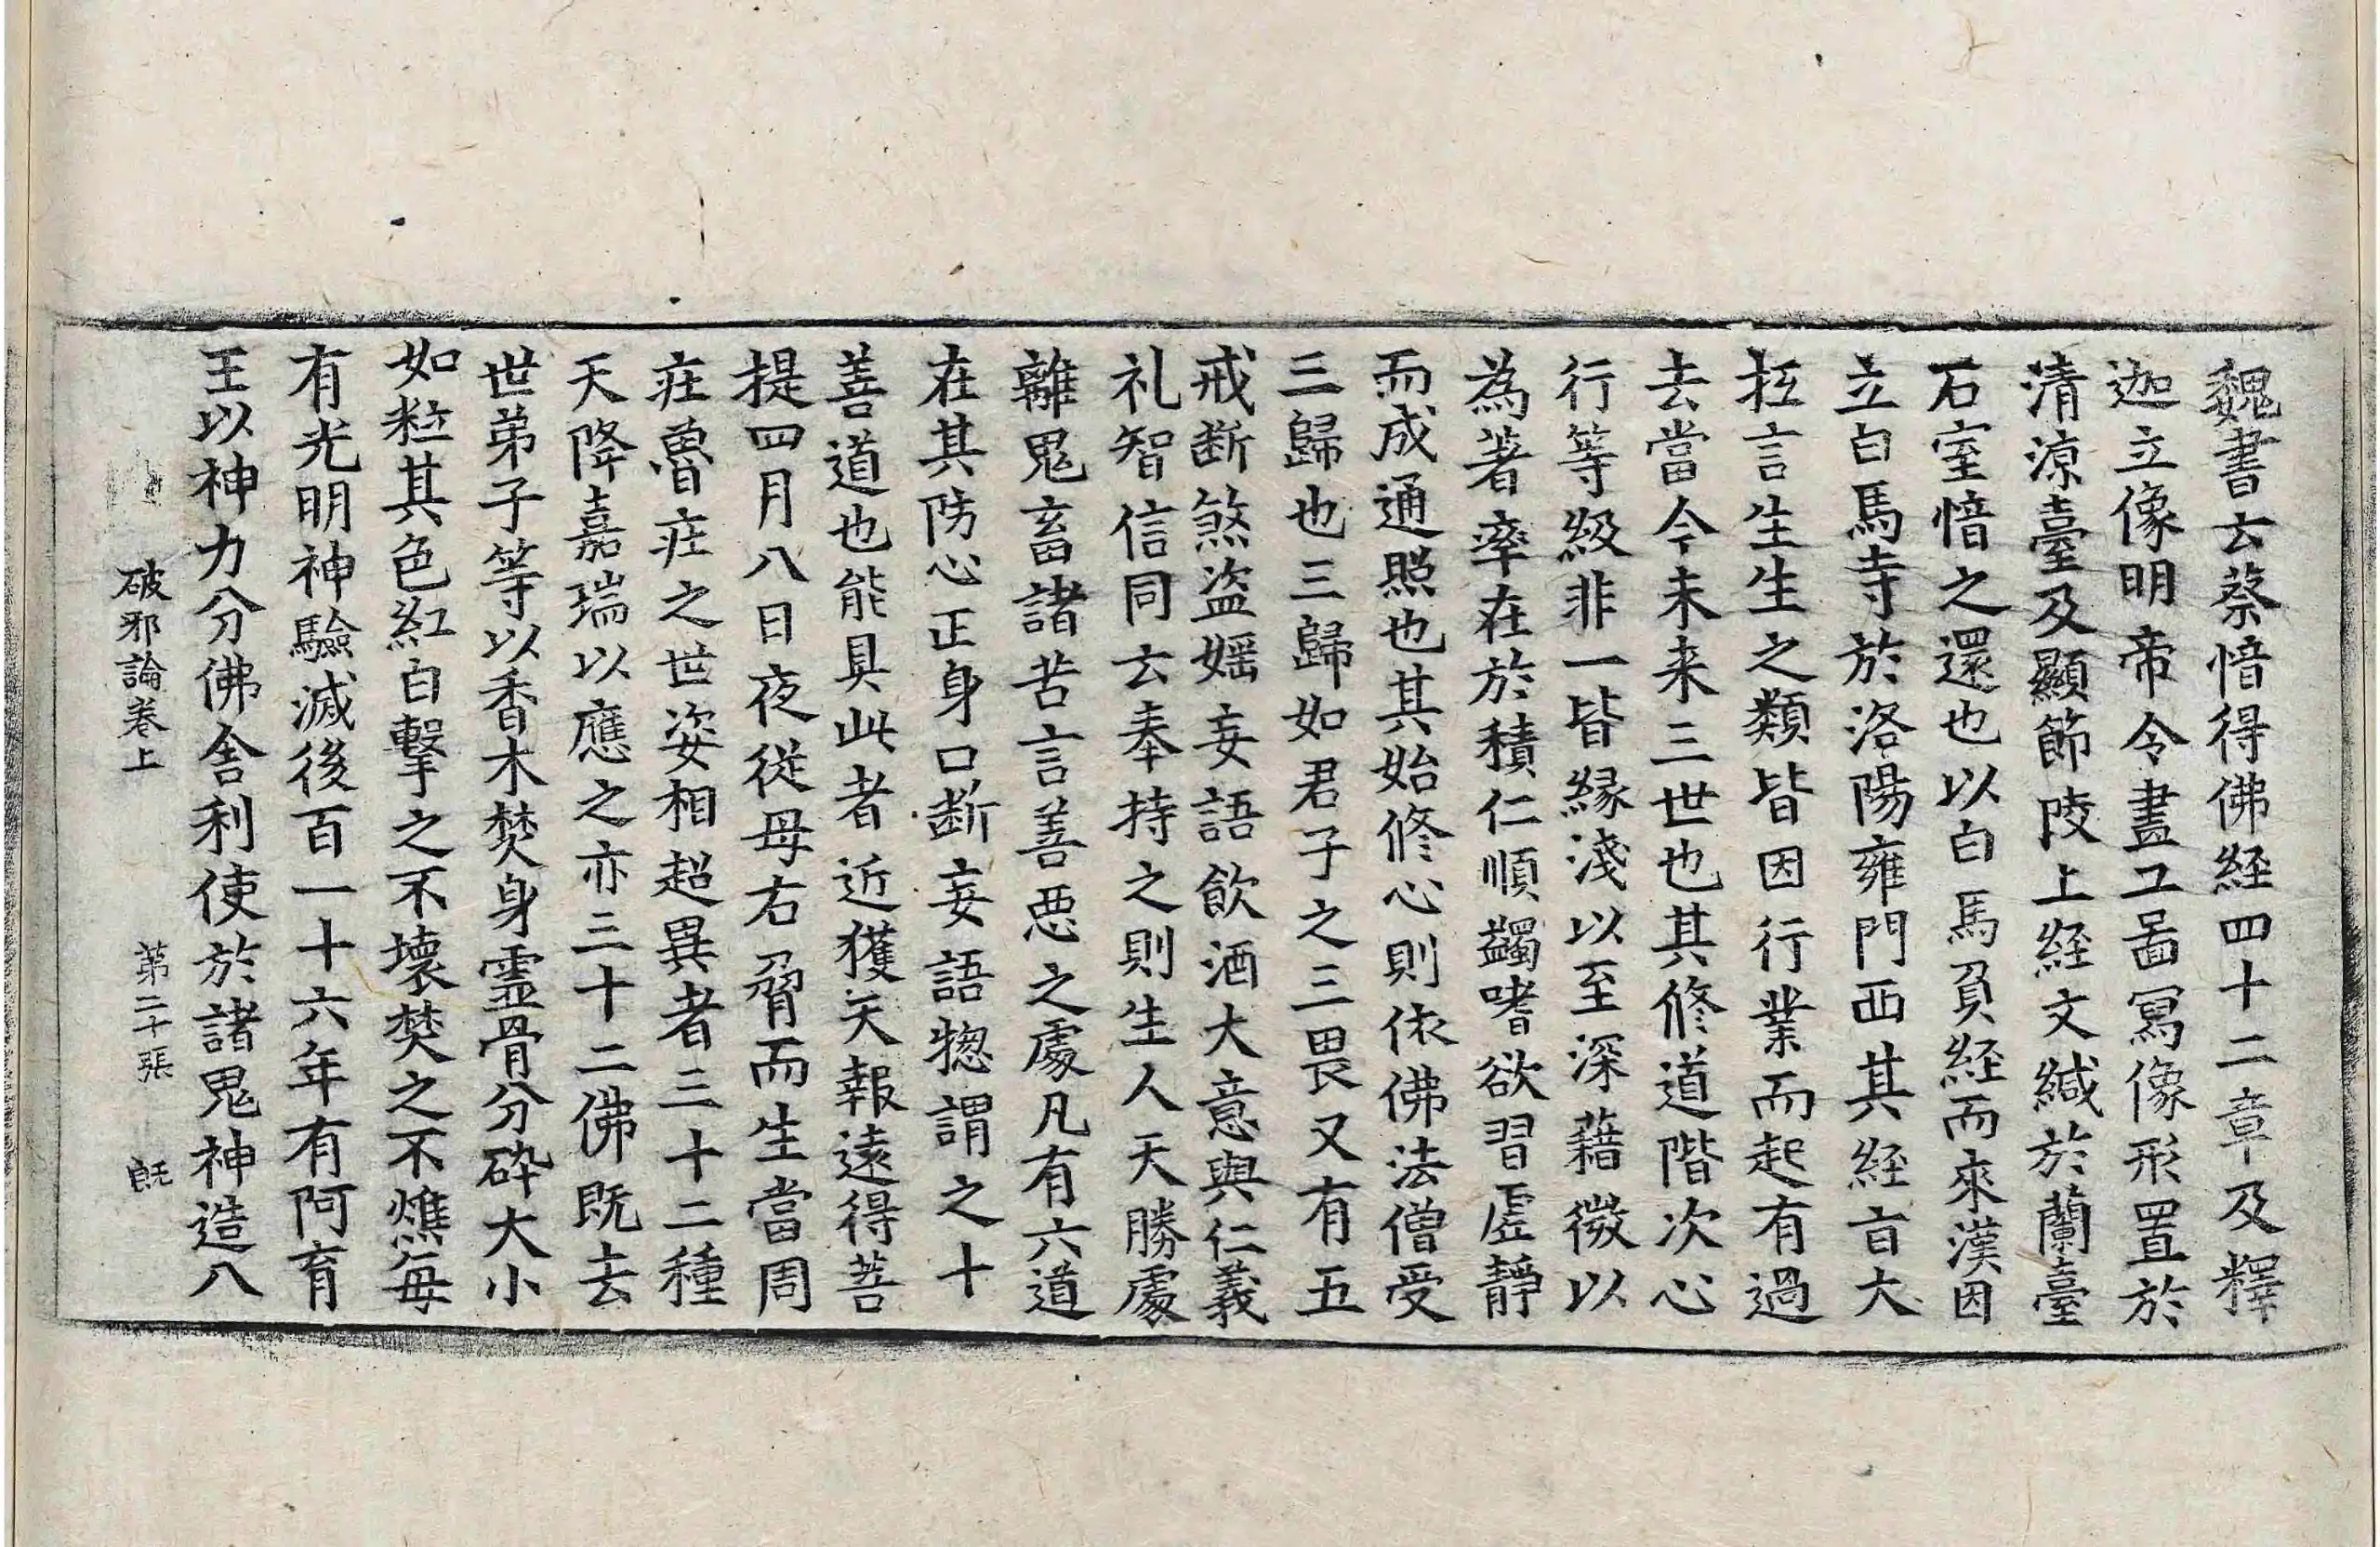 魏書云蔡愔得佛経四十二章及釋
迦立像明帝令畫工啚冩像形置於
清涼臺及顯節陵上経文緘於蘭臺
石室愔之還也以白馬負経而來漢因
立白馬寺於洛陽雍門西其経旨大
抂言生生之類皆因行業而起有過
去當今未来三世也其修道階次心
行等級非一皆緣淺以至深藉微以
為著率在於積仁順蠲嗜欲習虛靜
而成通照也其始修心則依佛法僧受
三歸也三歸如君子之三畏又有五
戒断煞盜婬妄語飲酒大意與仁義
礼智信同云奉持之則生人天勝處
離鬼畜諸苦言善惡之處凡有六道
在其防心正身口断妄語惣謂之十
善道也能具此者近獲天報遠得菩
提四月八日夜從母右脅而生當周
莊魯莊之世姿相超異者三十二種
天降嘉瑞以應之亦三十二佛既去
世弟子等以香木焚身靈骨分碎大小
如粒其色紅白擊之不壞焚之不燋每
有光明神驗滅後百一十六年有阿育
王以神力分佛舍利使於諸鬼神造八
破邪論卷上 第二十張 既